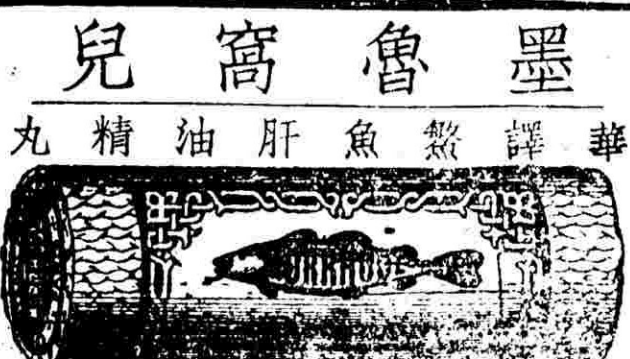 墨魯窩兒
華譯鰵魚肝油精丸